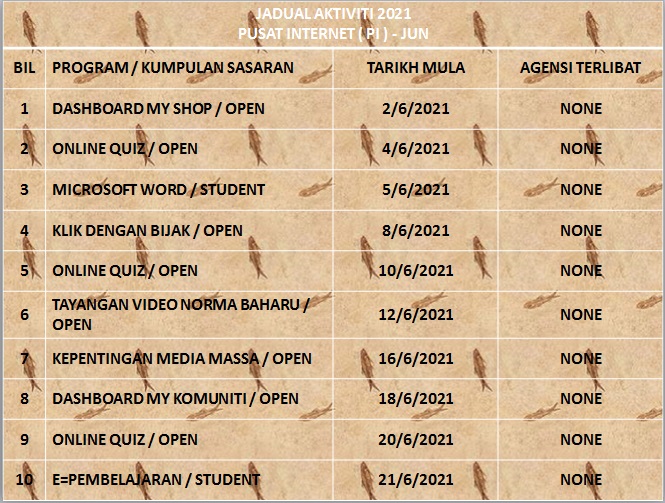 JADUAL AKTIVITI 2021
PUSAT INTERNET ( PI ) - JUN
BIL PROGRAM / KUMPULAN SASARAN TARIKH MULA AGENSI TERLIBAT
1 DASHBOARD MY SHOP / OPEN 2/6/2021 NONE
2 ONLINE QUIZ / OPEN 4/6/2021 NONE
3 MICROSOFT WORD / STUDENT 5/6/2021 NONE
4 KLIK DENGAN BIJAK / OPEN 8/6/2021 NONE
5 ONLINE QUIZ / OPEN 10/6/2021 NONE
6 TAYANGAN VIDEO NORMA BAHARU /
OPEN 12/6/2021 NONE
7 KEPENTINGAN MEDIA MASSA / OPEN 16/6/2021 NONE
8 DASHBOARD MY KOMUNITI / OPEN 18/6/2021 NONE
9 ONLINE QUIZ / OPEN 20/6/2021 NONE
10 E=PEMBELAJARAN / STUDENT 21/6/2021 NONE